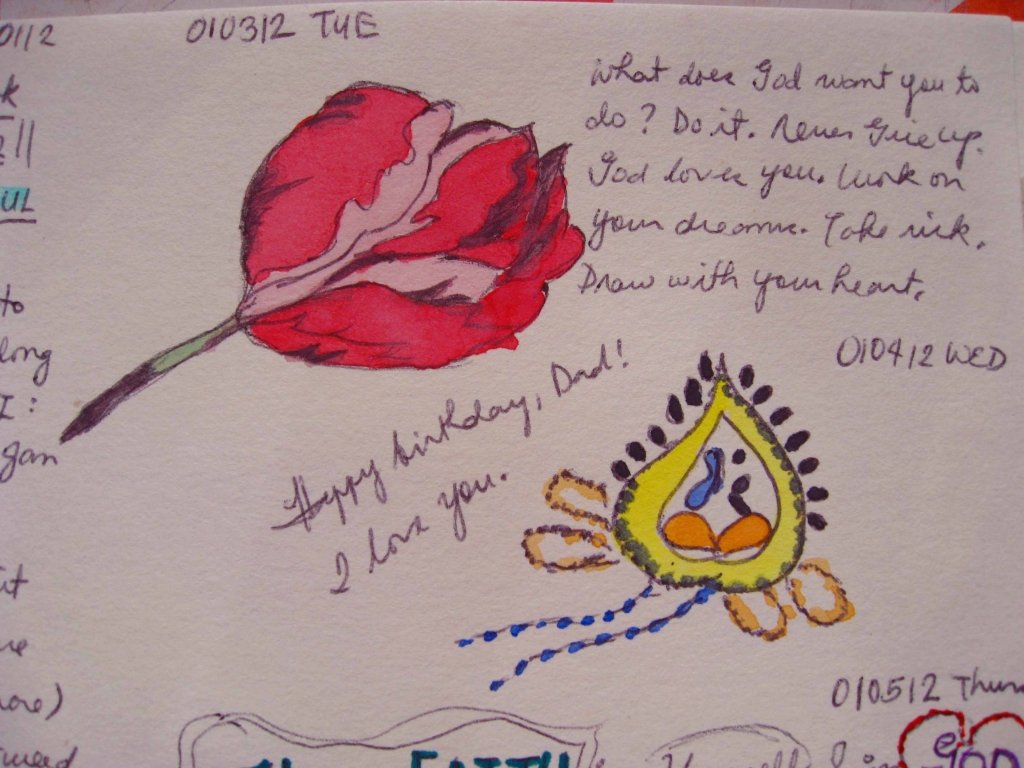 0112
010312 TUE
k
!!
UL
to
long
I:
gan
it
ore)
What does God want you to
do? Do it. Never Give up.
God loves you. Work on
your dreams. Take risk.
Draw with your heart.
Happy birthday, Dad!
I love you.
010412 WED
010512 Thur
FAITH
GOD